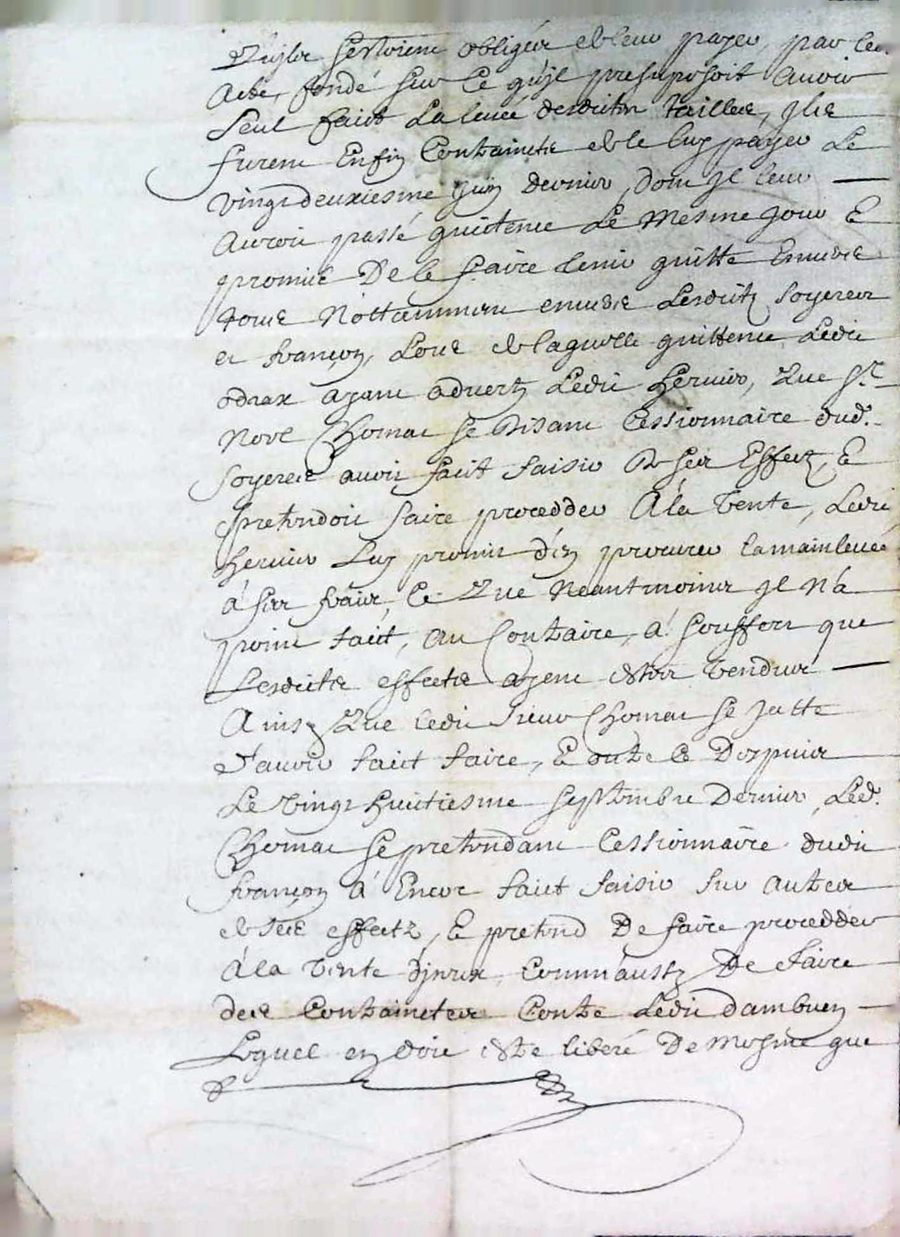 qu'ils s'estoient obligéz de leur payer, par led.
Acte, fondé sur ce qu'jl presuposoit Avoir
Seul faict La levée desdites tailles, jls
furent Enfin Contraincts de le luy payer Le
vingt deuxiesme juin dernier, dont jl leur —
Auroit passé quictence Le Mesme jour E
promis De les faire tenir quitte Envers
tous Nottamment envers Lesditz Soyeres
et françon, Lors de laquelle quittence Ledit
odrax ayant adverty Ledit hervier, que Sr.
Nove Thomas se Disant Cessionnaire dud.
Soyeres avoit fait saisir De ses Effectz, E
pretendoit faire procedder A la Vente, Ledit
hervier Luy promit d'en procurer la mainlevée
à ses fraix, Ce que Neantmoins jl n'a
point faict, au Contraire, à souffert que
Lesdicts effects ayent estés vendus —
Ainsy que ledit Sieur Thomas se jatte
d'avoir faict faire, E outre ce Despuis
Le vingt huitiesme septembre Dernier, Led.
Thomas se pretendant Cessionnaire dudit
françon à Encor faict saisir sur autres
de ses effectz, E pretend De faire procedder
à la vente d'jceux, Comm'aussy De faire
des Contrainctes Contre Ledit dambuen —
Lequel en doit estre liberé De mesme que